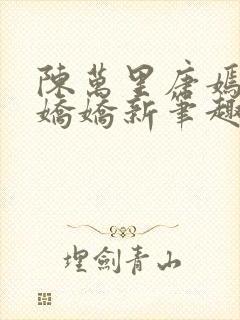 陳萬里唐嫣
嬌嬌新筆趣
埋劍青山